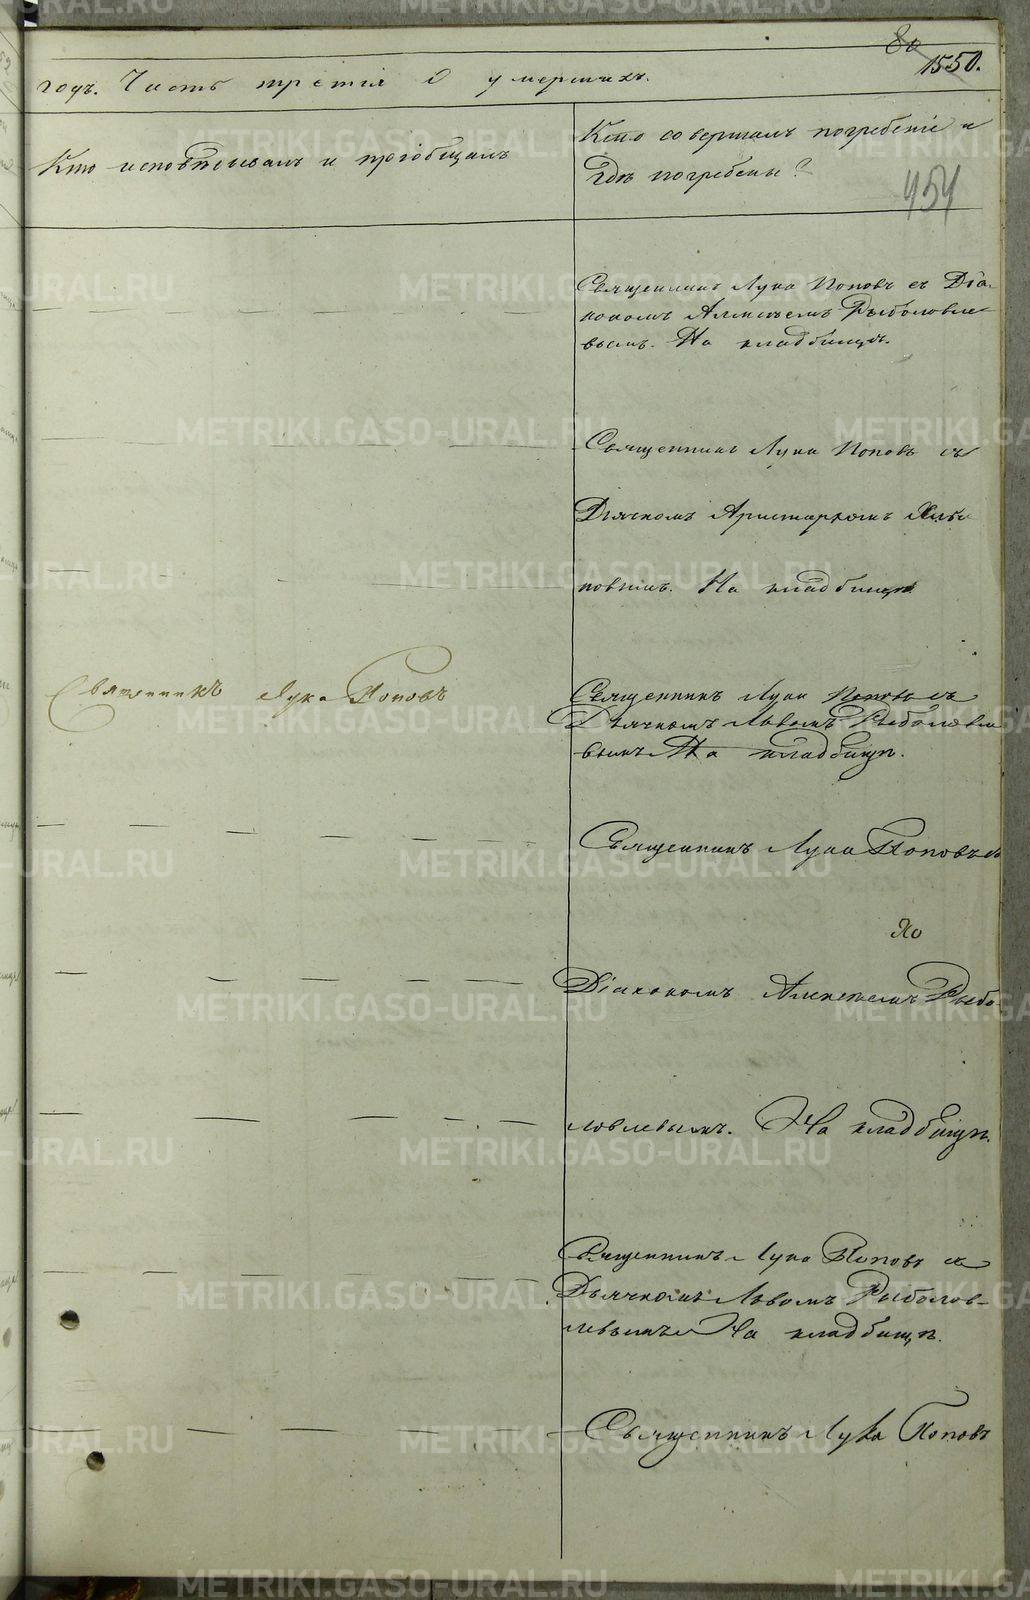 80
1550.
годъ. Часть третія о умершихъ.
Кто исповѣдывалъ и пріобщалъ
Кто совершалъ погребеніе и
гдѣ погребены?
454
Священникъ Лука Поповъ съ Діа-
кономъ Алексѣемъ Рыболовле-
вымъ. На кладбищѣ.
Священникъ Лука Поповъ съ
Дьячкомъ Аристархомъ
повымъ. На кладбищѣ
Священникъ Лука Поповъ
Священникъ Лука Поповъ съ
Дьячкомъ Львомъ Рыболовле
вымъ На кладбищѣ.
Священникъ Лука Поповъ съ
Діакономъ Алексѣемъ Рыбо-
ловлевымъ. На кладбищѣ.
Священникъ Лука Поповъ съ
Дьячкомъ Львомъ Рыболов-
левымъ На кладбищѣ.
Священникъ Лука Поповъ
METRIKI.GASO-URAL.RU